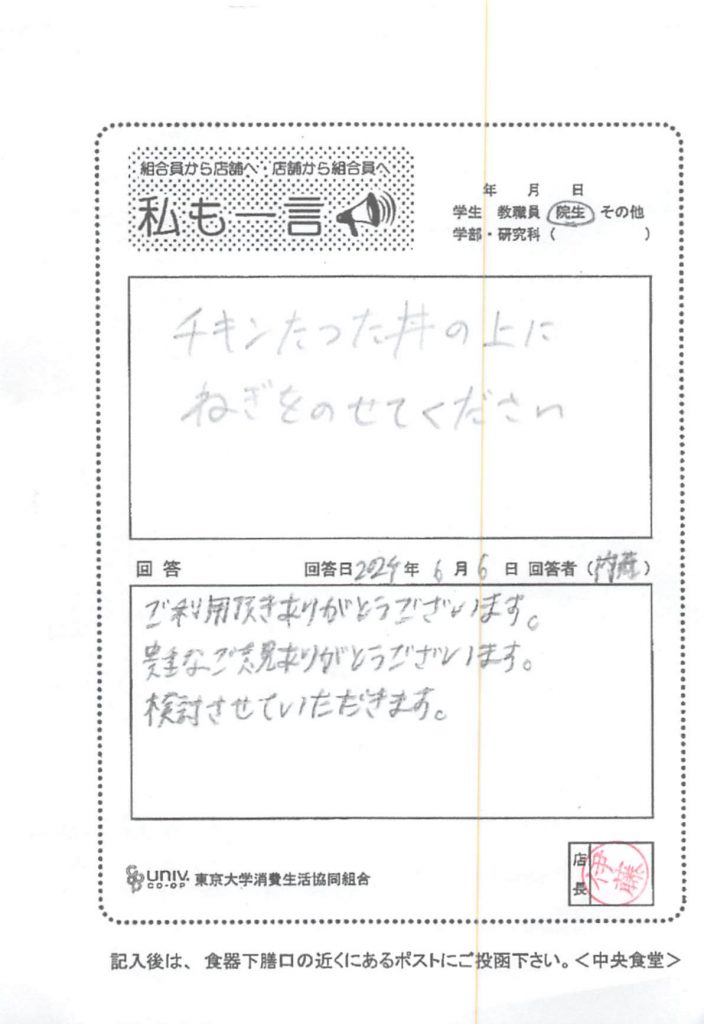 組合員から店舗へ・店舗から組合員へ
私も一言
年 月 日
学生 教職員 院生 その他
学部・研究科( )
チキンたつた丼の上に
ねぎをのせてください
回答 回答日2024年 6月 6日 回答者(内藤)
ご利用頂きありがとうございます。
貴重なご意見ありがとうございます。
検討させていただきます。
店長
伊藤
UNIV. CO-OP 東京大学消費生活協同組合
記入後は、食器下膳口の近くにあるポストにご投函下さい。<中央食堂>